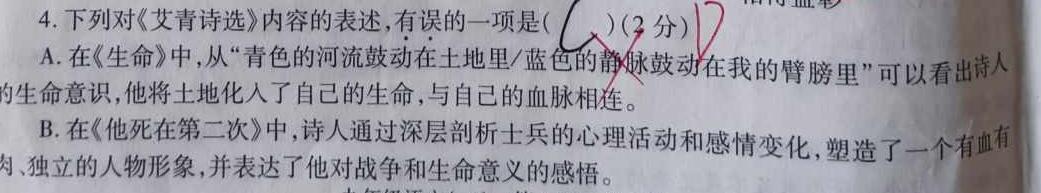 4. 下列对《艾青诗选》内容的表述,有误的一项是( C )(2 分) D
A. 在《生命》中,从“青色的河流鼓动在土地里/蓝色的静脉鼓动在我的臂膀里”可以看出诗人
的生命意识,他将土地化入了自己的生命,与自己的血脉相连。
B. 在《他死在第二次》中,诗人通过深层剖析士兵的心理活动和感情变化,塑造了一个有血有
肉、独立的人物形象,并表达了他对战争和生命意义的感悟。